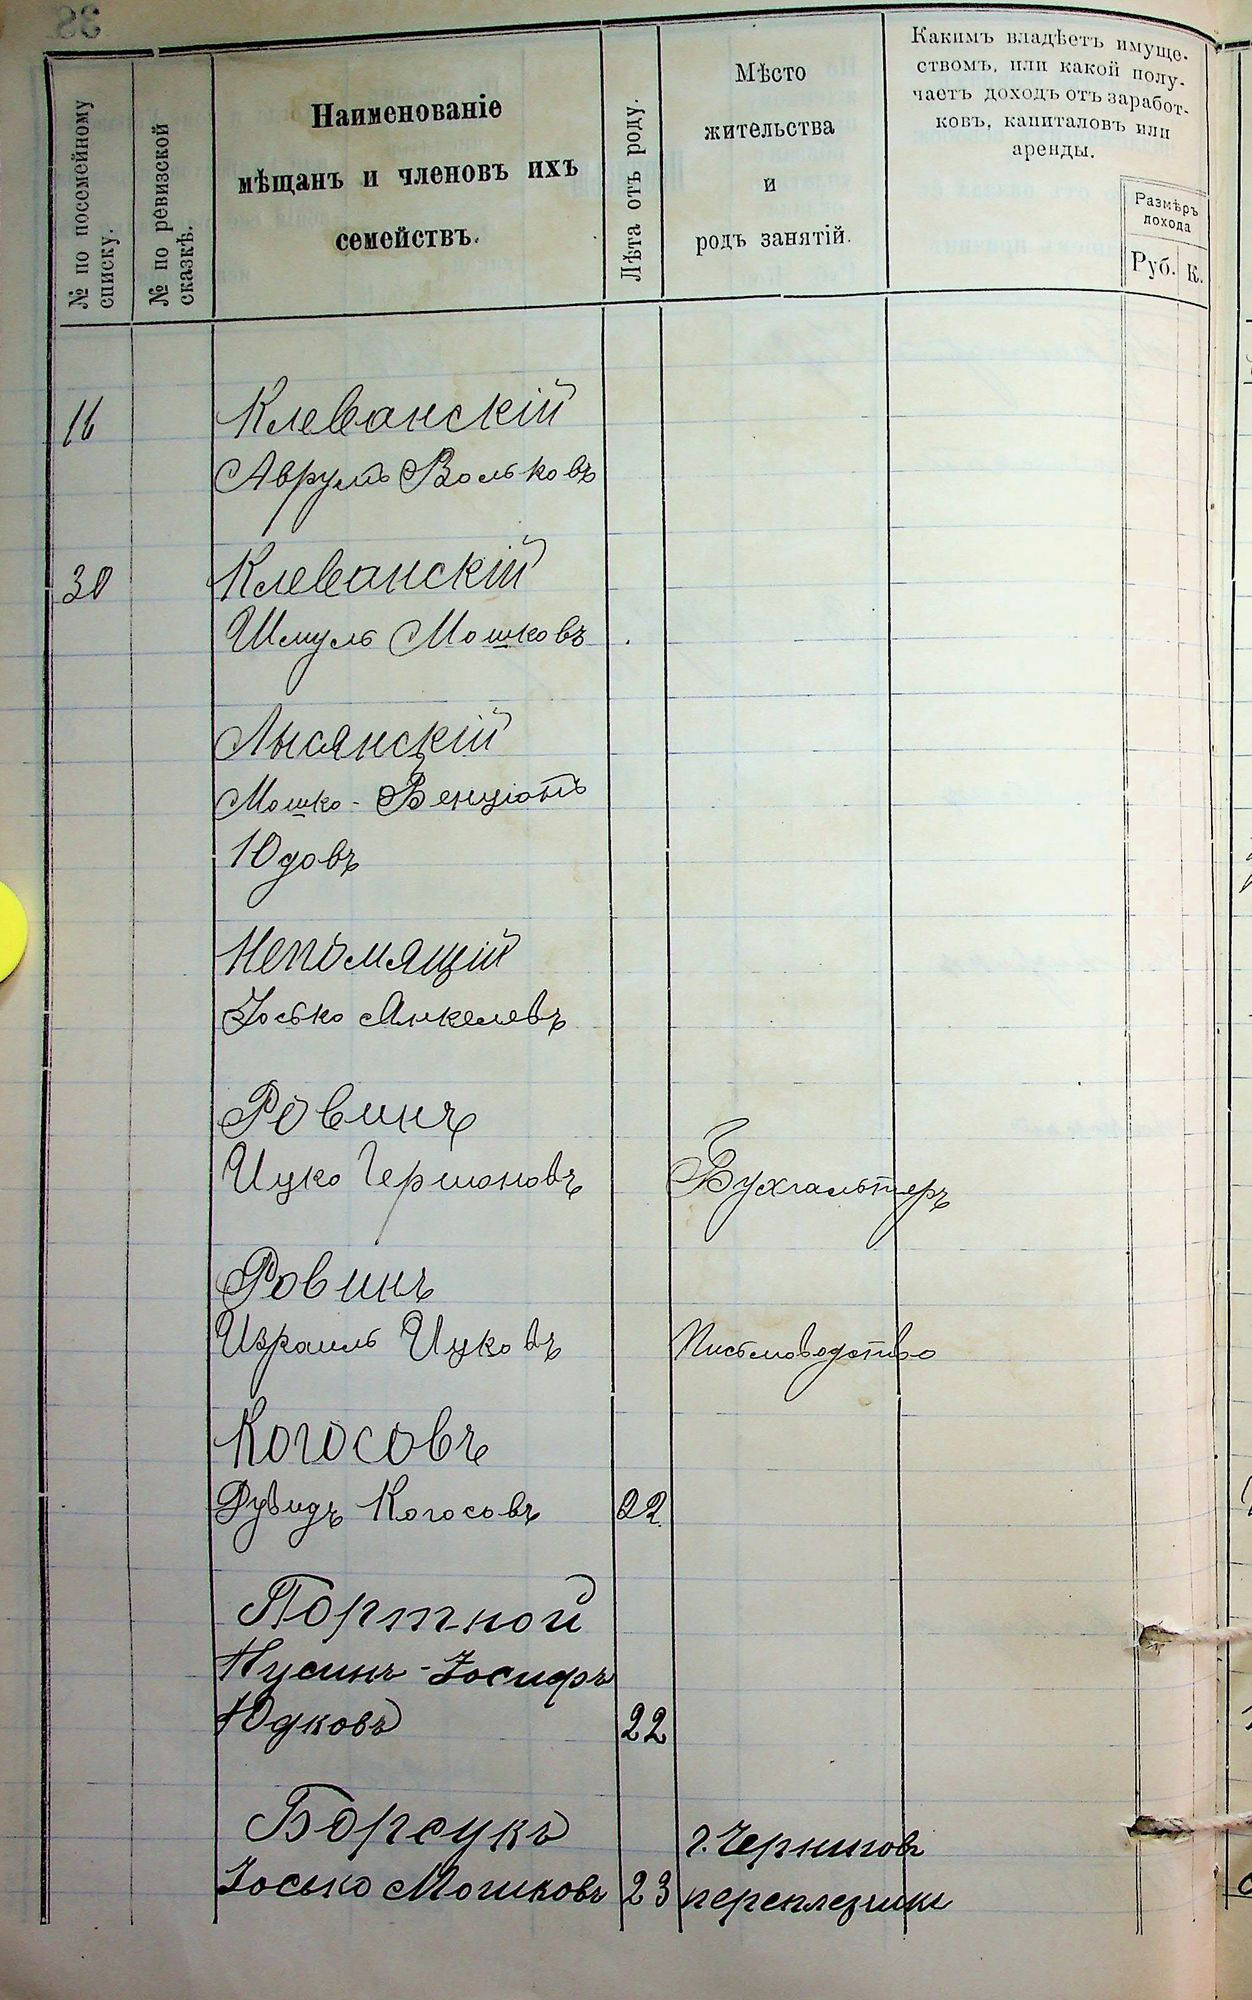 № по посемейному
списку.
№ по ревизской
сказкѣ.
Наименованіе
мѣщанъ и членовъ ихъ
семействъ.
Лѣта отъ роду.
Мѣсто
жительства
и
родъ занятій.
Какимъ владѣетъ имуще-
ствомъ, или какой полу-
чаетъ доходъ отъ заработ-
ковъ, капиталовъ или
аренды.
Размѣръ
дохода
Руб. К.
16 Клеванскій
Аврумъ Вольковъ
30 Клеванскій
Шмуль Мошковъ
Лысянскій
Мошко-Бенціонъ
Юдовъ
Непомящій
Іосько Янкелевъ
Ровинъ
Ицко Гершоновъ Бухгальтеръ
Ровинъ
Израиль Ицковъ Письмоводство
Когосовъ
Рувидъ Когосовъ 22
Портной
Нусинъ-Іосифъ
Юдковъ 22
Борсукъ г. Черниговъ
Іосько Мошковъ 23